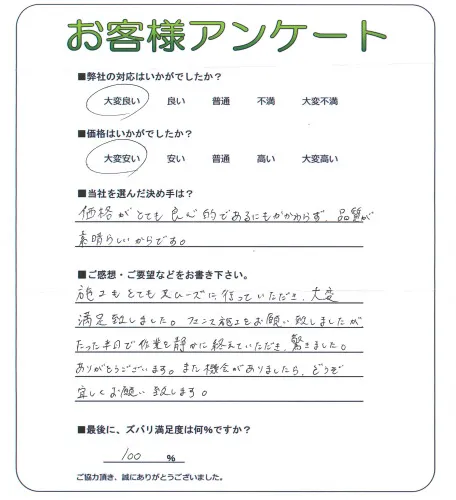 お客様アンケート
■弊社の対応はいかがでしたか？
大変良い 良い 普通 不満 大変不満
■価格はいかがでしたか？
大変安い 安い 普通 高い 大変高い
■当社を選んだ決め手は？
価格がとても良心的であるにもかかわらず、品質が
素晴らしいからです。
■ご感想・ご要望などをお書き下さい。
施工もとてもスムーズに行っていただき、大変
満足致しました。フェンス施工をお願い致しましたが
たった半日で作業を静かに終えていただき、驚きました。
ありがとうございます。また機会がありましたら、どうぞ
宜しくお願い致します。
■最後に、ズバリ満足度は何％ですか？
100 ％
ご協力頂き、誠にありがとうございました。